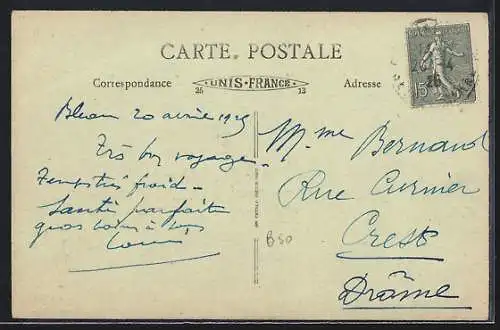 CARTE POSTALE
Correspondance
UNIS-FRANCE
26 13
Adresse
15
20 avril 1925
Très bon voyage
Temps très froid -
Santé parfaite
gros à
Mme Bernard
Rue
Crest
Drôme
B50